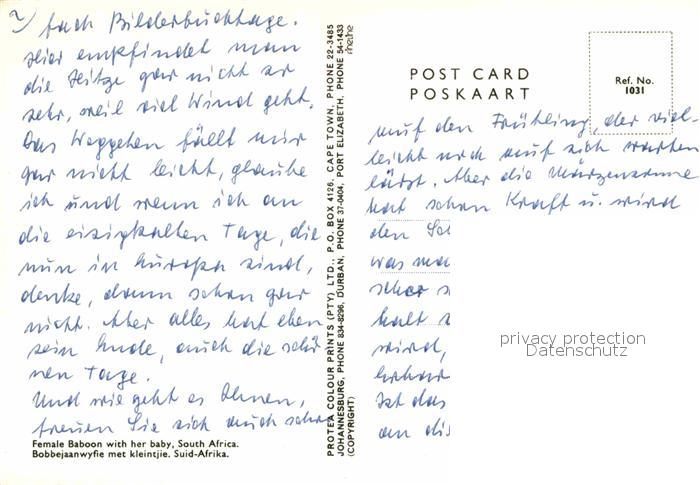 2) fach Bilderbuchtage.
Hier empfindet man
die Hitze gar nicht so
sehr, weil viel Wind geht.
Das Weggehen fällt mir
gar nicht leicht, glaube
ich und wenn ich an
die eisigkalten Tage, die
nun in Europa sind,
denke, dann schon gar
nicht. Aber alles hat eben
sein Ende, auch die schö-
nen Tage.
Und wie geht es Ihnen,
freuen Sie sich auch schon
Female Baboon with her baby, South Africa.
Bobbejaanwyfie met kleintjie. Suid-Afrika.
PROTEA COLOUR PRINTS (PTY) LTD., P.O. BOX 4126, CAPE TOWN, PHONE 22-3485
JOHANNESBURG, PHONE 834-8296, DURBAN, PHONE 37-0404, PORT ELIZABETH, PHONE 54-1433
(COPYRIGHT)
POST CARD
POSKAART
Ref. No.
1031
auf den Frühling, der viel-
leicht noch auf sich warten
läßt. Aber die Märzensonne
hat schon Kraft u. wird
den
was
halt
wird,
Ist das
an
privacy protection
Datenschutz